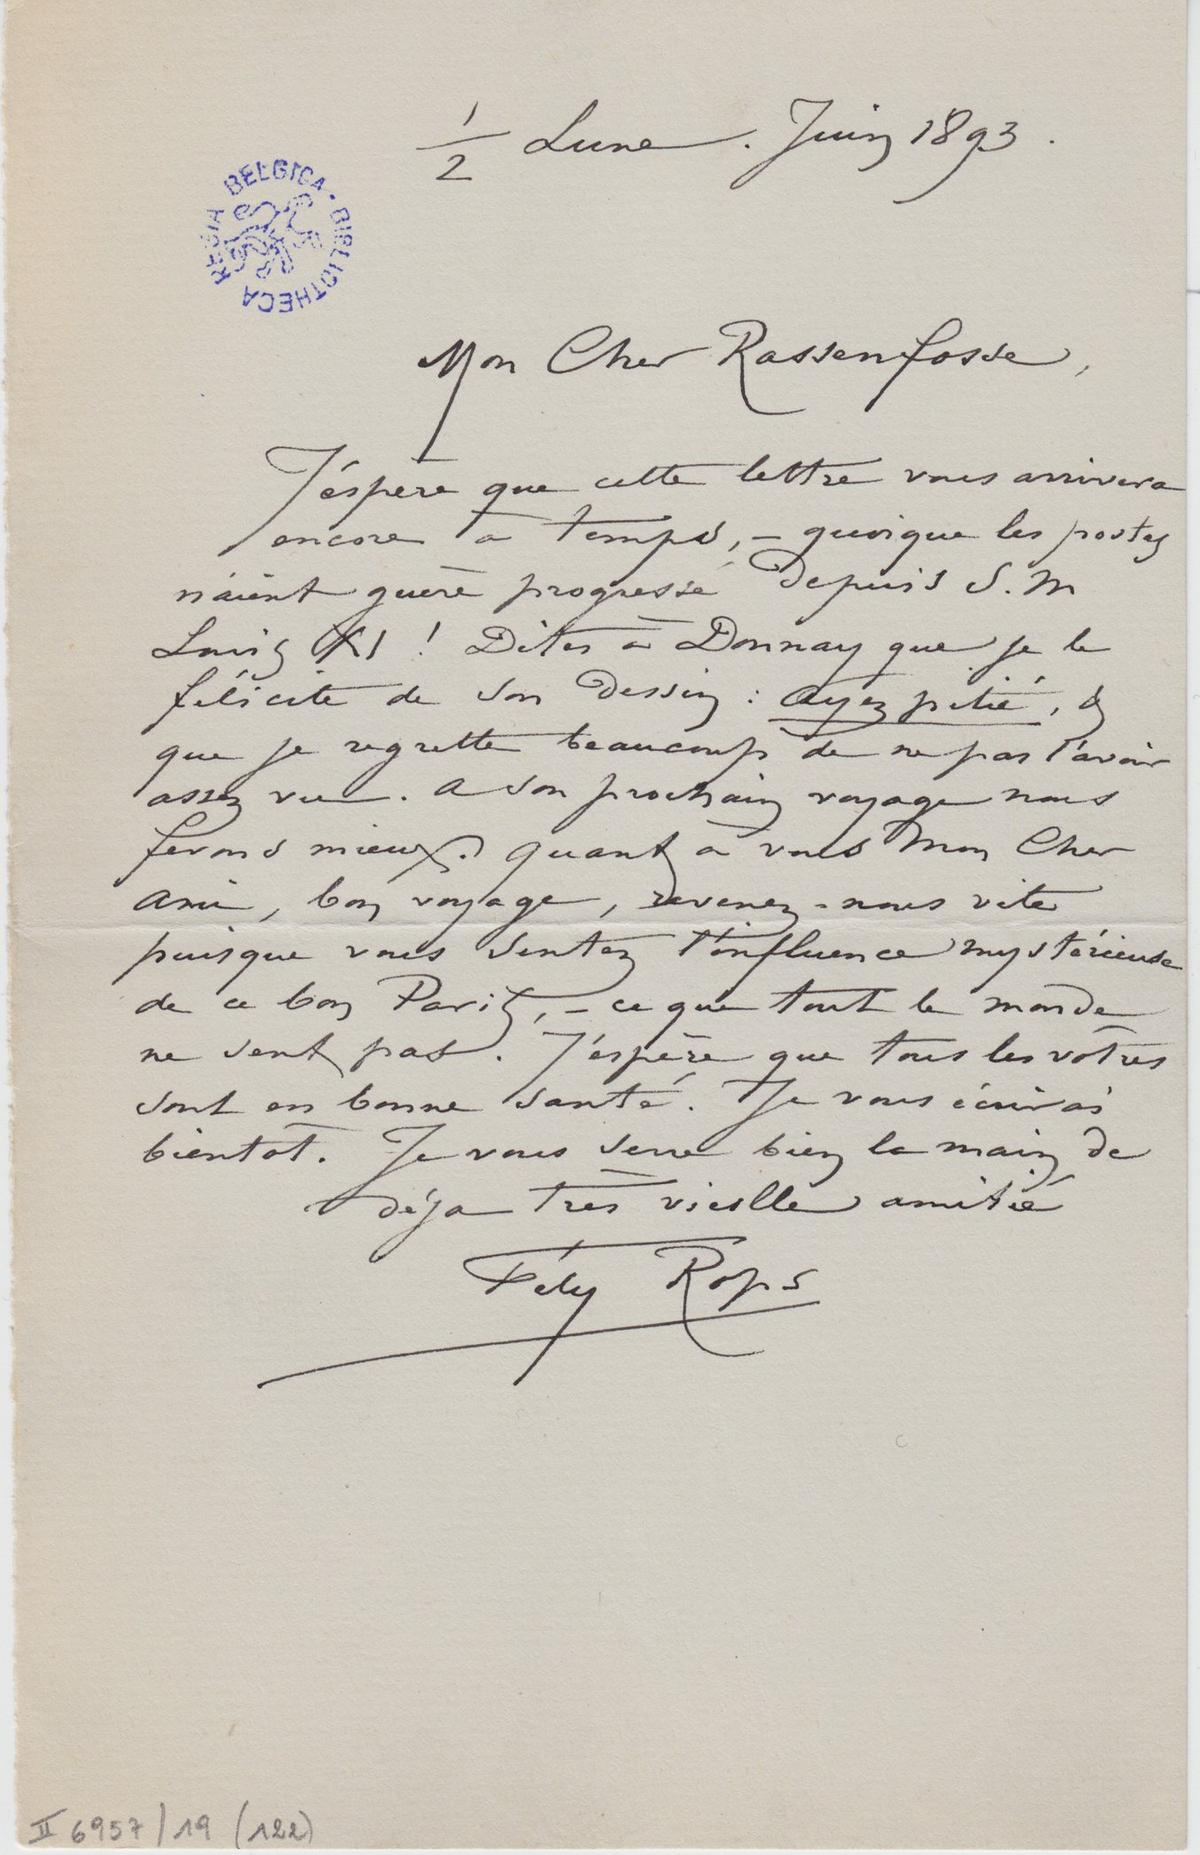 1/2 Lune. Juin 1893.
REGIA BELGICA · BIBLIOTHECA
Mon Cher Rassenfosse,
J'éspère que cette lettre vous arrivera
encore à temps, – quoique les postes
n'aient guère progressé depuis S.M
Louis XI ! Dites à Donnay que je le
félicite de son dessin : ayez pitié, &
que je regrette beaucoup de ne pas l'avoir
assez vu. A son prochain voyage nous
ferons mieux. Quant à vous Mon Cher
ami, bon voyage, revenez-nous vite
puisque vous sentez l'influence mystérieuse
de ce bon Paris, – ce que tout le monde
ne sent pas. J'espère que tous les vôtres
sont en bonne santé. Je vous écrirai
bientôt. Je vous serre bien la main de
déja très vieille amitié
Fély Rops
II 6957/19 (122)